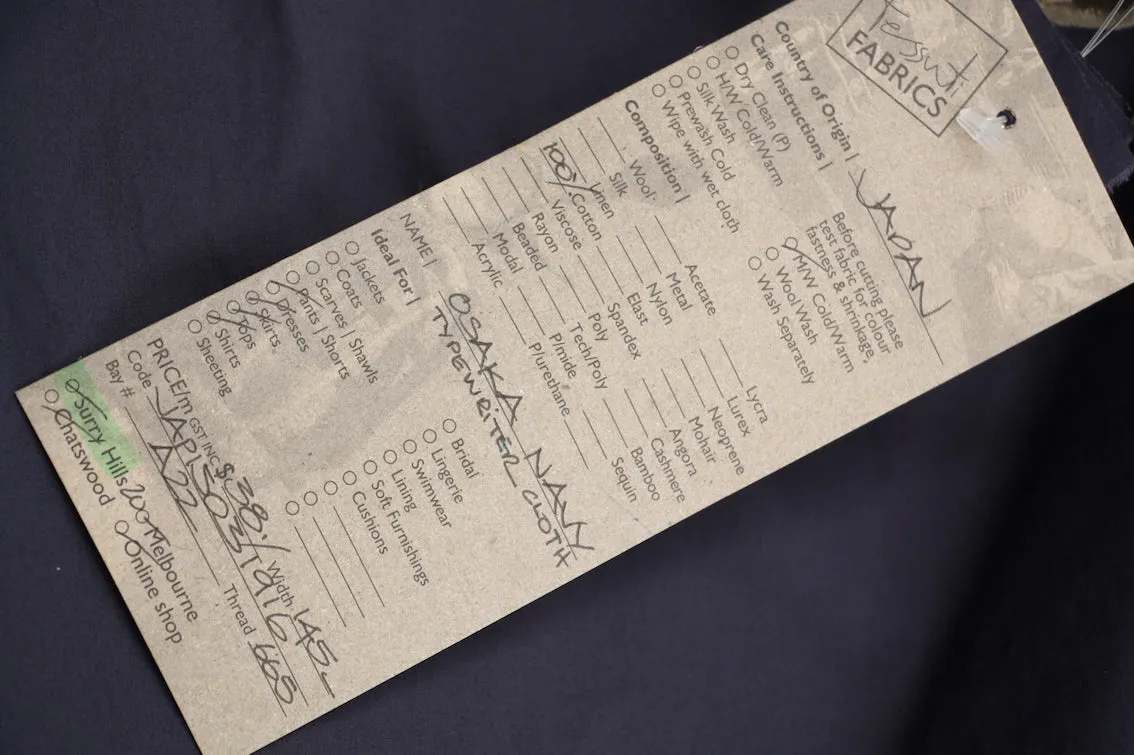 Tessuti
FABRICS
Country of Origin | JAPAN
Care Instructions |
Dry Clean (P)
H/W Cold/Warm
Silk Wash
Prewash Cold
Wipe with wet cloth
Before cutting please
test fabric for colour
fastness & shrinkage.
M/W Cold/Warm
Wool Wash
Wash Separately
Composition |
Wool
Silk
Linen
100% Cotton
Viscose
Rayon
Beaded
Modal
Acrylic
Acetate
Metal
Nylon
Elast
Spandex
Poly
Tech/Poly
P/mide
P/urethane
Lycra
Lurex
Neoprene
Mohair
Angora
Cashmere
Bamboo
Sequin
NAME | OSAKA NAVY
TYPEWRITER CLOTH
Ideal For |
Jackets
Coats
Scarves | Shawls
Pants | Shorts
Dresses
Skirts
Tops
Shirts
Sheeting
Bridal
Lingerie
Swimwear
Lining
Soft Furnishings
Cushions
PRICE/m GST INC $38.- Width 145-
Code JAP-5031916
Bay # A22 Thread 665
Surry Hills 200 Melbourne
Chatswood Online shop